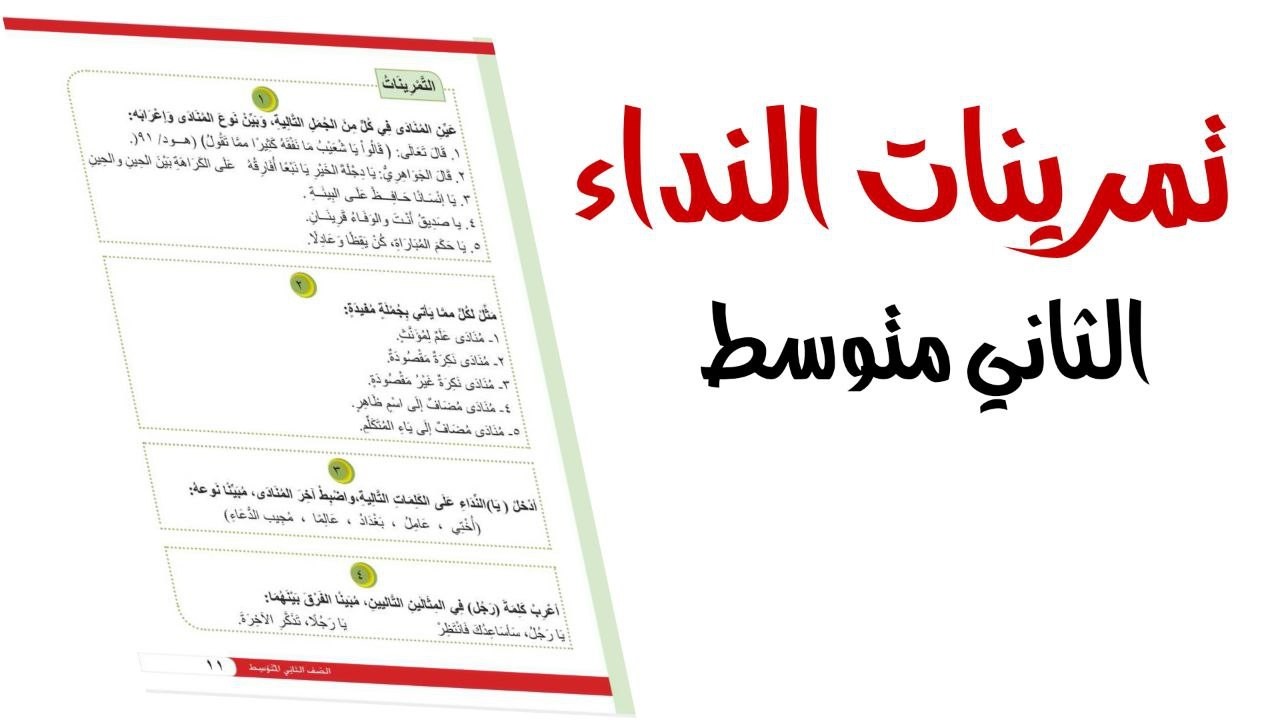 تمرينات النداء
الثاني متوسط
التَّمْرِينَاتُ
١
عَيِّنِ المُنَادَى فِي كُلٍّ مِنَ الجُمَلِ التَّالِيَةِ، وَبَيِّنْ نَوعَ المُنَادَى وَإعْرَابَه:
١. قَالَ تَعَالَى: ( قَالُواْ يَا شُعَيْبُ مَا نَفْقَهُ كَثِيرًا مِّمَّا تَقُولُ) (هـود/ ٩١(.
٢. قَالَ الجَوَاهِرِيُّ: يَا دِجْلَةَ الخَيْرِ يَا نَبْعًا أفَارِقُهُ عَلَى الكَرَاهَةِ بَيْنَ الحِينِ والحِينِ
٣. يَا إنْسَانًا حَافِـظْ عَلَـى البِيئَـةِ .
٤. يا صَدِيقُ أنْـتَ والوَفَـاءُ قَرِينَـانِ.
٥. يَا حَكَمَ المُبَارَاةِ، كُنْ يَقِظًا وَعَادِلًا.
٢
مَثِّلْ لِكُلٍّ مِمَّا يَأتي بِجُمْلَةٍ مُفيدَةٍ:
١- مُنَادًى عَلَمٌ لِمُؤَنَّثٍ.
٢- مُنَادًى نَكِرَةٌ مَقْصُودَةٌ.
٣- مُنَادًى نَكِرَةٌ غَيْرُ مَقْصُودَةٍ.
٤- مُنَادًى مُضَافٌ إلَى اسْمٍ ظَاهِرٍ.
٥- مُنَادًى مُضَافٌ إلَى يَاءِ المُتَكَلِّمِ.
٣
أدْخِلْ ( يَا)النِّدَاءِ عَلَى الكَلِمَاتِ التَّالِيَةِ،واضْبِطْ آخِرَ المُنَادَى، مُبَيِّنًا نَوعَهُ:
(أُخْتِي ، عَامِلُ ، بَغْدَادُ ، عَالِمًا ، مُجِيب الدُّعَاءِ)
٤
أعْرِبْ كَلِمَةَ (رَجُل) فِي المِثَالَينِ التَّاليَينِ، مُبَينًا الفَرْقَ بَيْنَهُمَا:
يَا رَجُلُ، سَأسَاعِدُكَ فَانْتَظِرْ يَا رَجُلًا، تَذَكَّرِ الآخِرَةَ.
الصّف الثاني المتوسط
١١